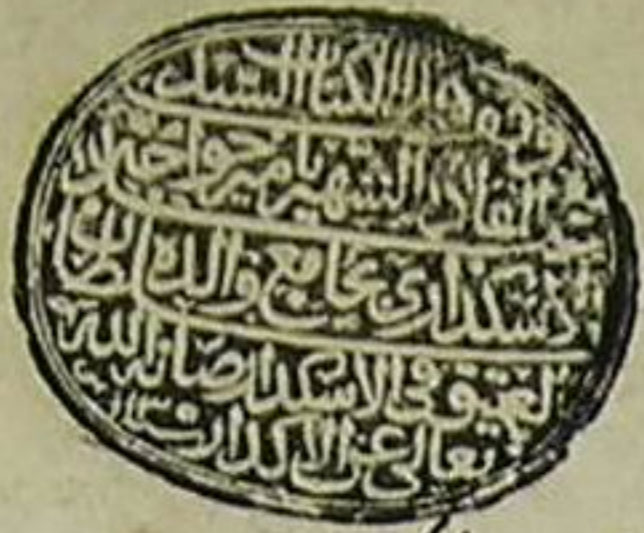 وقف هذا الكتاب السيد
القادري الشهير بأمير خواجه
الاسكداري بجامع والده سلطان
العتيق في الاسكدار صانه الله
تعالى عن الاكدار